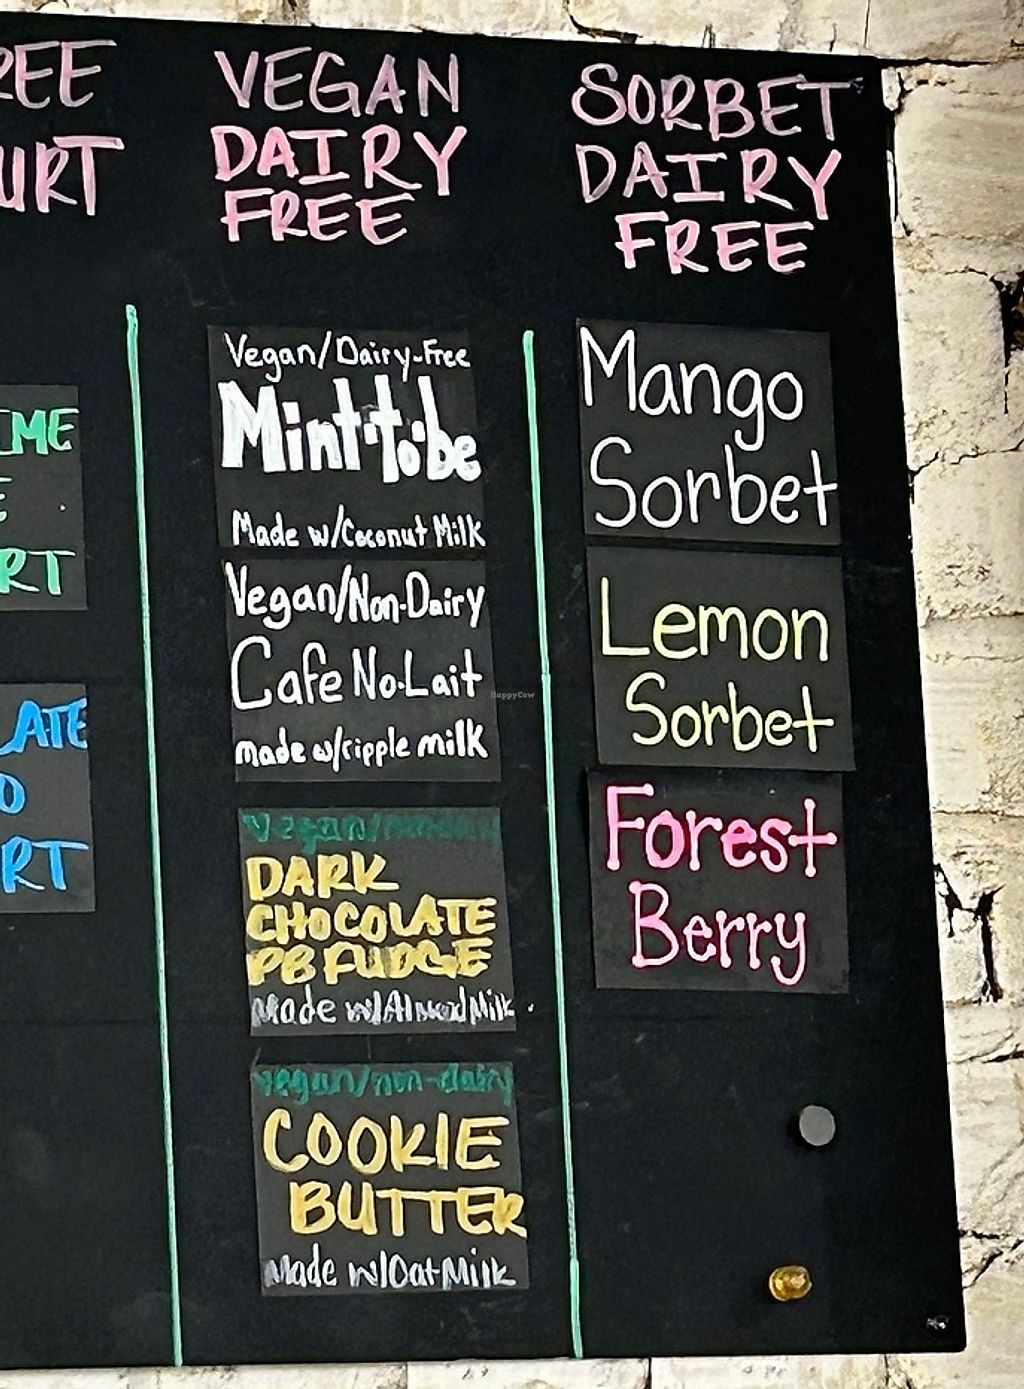 REE
URT
IME
E
RT
LATE
O
RT
VEGAN
DAIRY
FREE
Vegan/Dairy-Free
Mint to be
Made w/Coconut Milk
Vegan/Non-Dairy
Cafe No-Lait
made w/ripple milk
Vegan/
DARK
CHOCOLATE
PB FUDGE
Made w/Almond Milk
vegan/non-dairy
COOKIE
BUTTER
Made w/Oat Milk
SORBET
DAIRY
FREE
Mango
Sorbet
Lemon
Sorbet
Forest
Berry
HappyCow